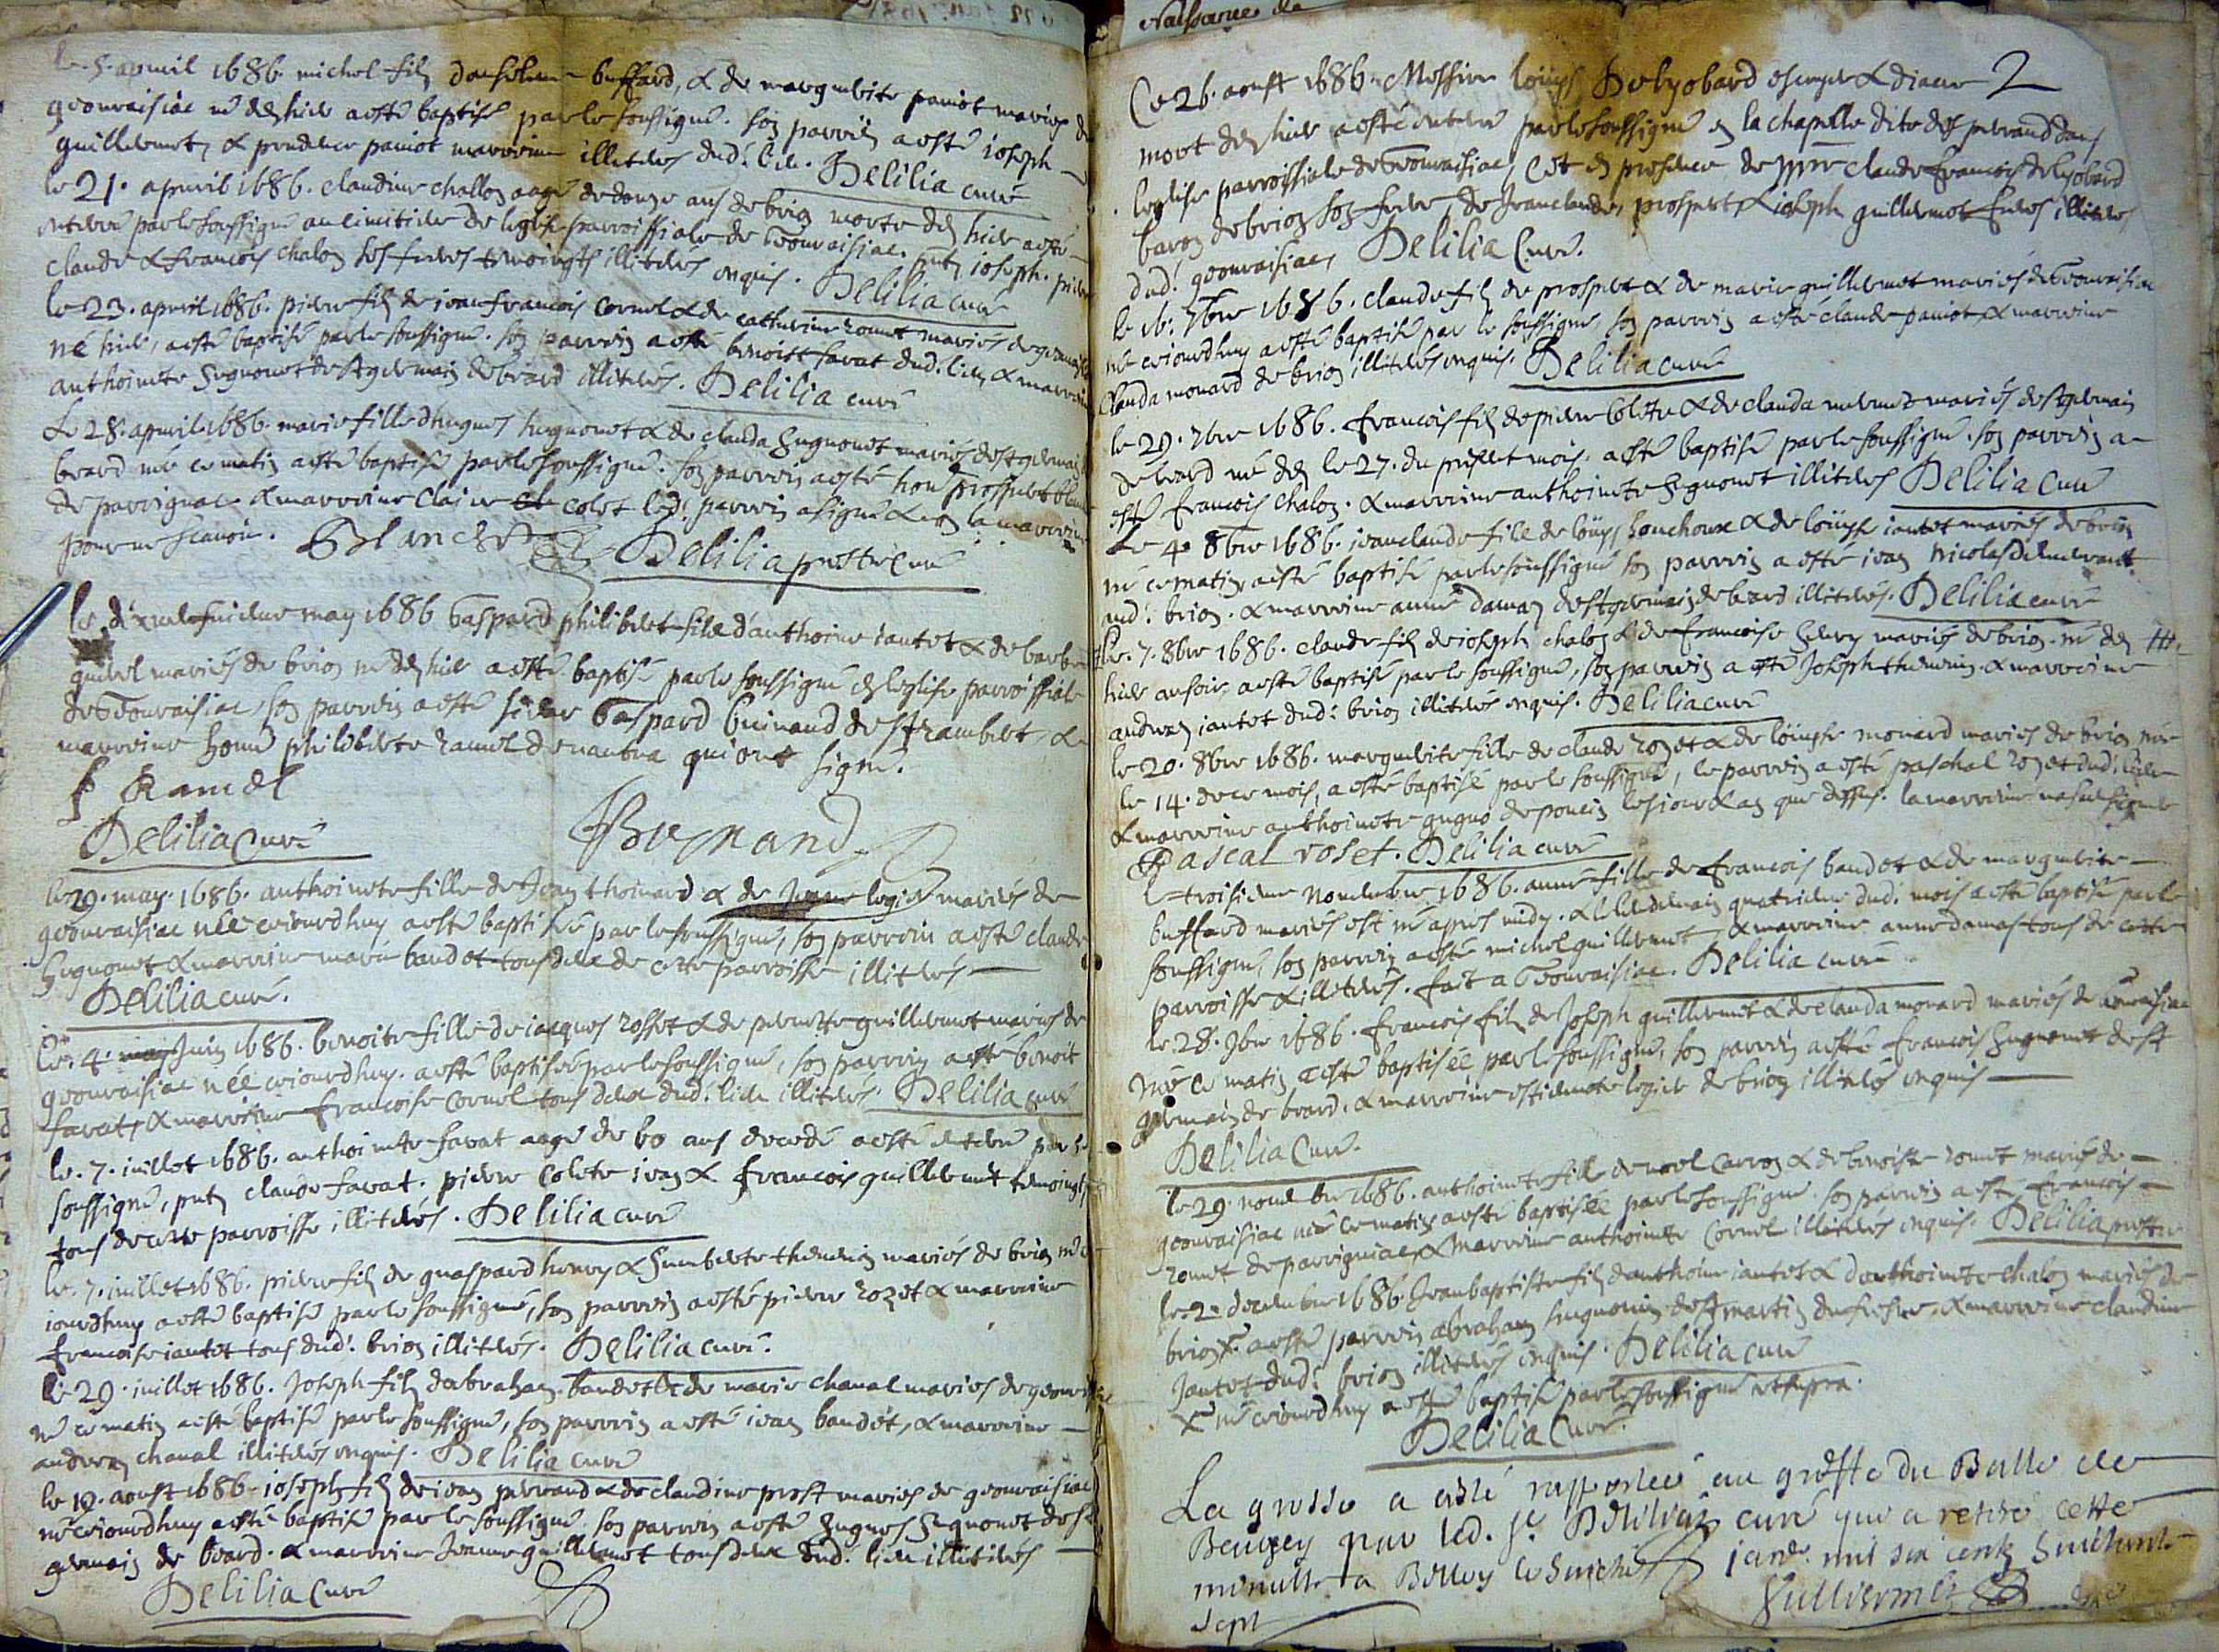 le 5. apvril 1686. michel fils danselme buffard, & de marguerite paniot maries de
geovraisiac né des hier a esté baptisé par le soussigné. son parrein a esté ioseph
guillermet, & prudence paniot marreine illiteres dud. lieu. Delilia curé
le 21. apvril 1686. claudine challon aage de douze ans de brion morte des hier a esté
enterré par le soussigné au cimitiere de leglise parroissiale de Geovraisiac. pnts ioseph. pierre
claude & francois chalon ses freres temoingts illiteres enquis. Delilia curé
le 23. apvril 1686. pierre fils de iean francois cornel & de catherine romet mariés de geovraisiac
né hier, a esté baptisé par le soussigné. son parrein a esté benoist favat dud. lieu & marreine
anthoinete hugonet de st germain de beard illiteres. Delilia curé
Le 28. apvril 1686. marie fille dhugues hugonet & de clauda hugonet mariés de st germain
beard née ce matin a esté baptisé par le soussigné. son parrein a esté hon. prosper blan
de parrignac & marreine claire colet led. parrein a signé & non la marreine
pour ne scavoir. Blanchet Delilia prestre curé
Le dixneufvieme may 1686 Gaspard philibert fils d'anthoine iantet & de barbe
quinel mariés de brion né des hier a esté baptisé par le soussigné en leglise parroissiale
de Geovraisiac, son parrein a esté sieur Gaspard Guinand de st rambert, &
marreine honn. philiberte ramel de nantua qui ont signé.
f Ramel
Delilia Curé
le 29. may. 1686. anthoinete fille de Jean thoinard & de Jeanne logier mariés de
geovraisiac née ceiourdhuy a esté baptisée par le soussigné, son parrein a esté claude
hugonet & marreine marie baudet tous deux de cette parroisse illiteres
Delilia curé.
Le 4. Juin 1686. benoite fille de iacques rosset & de pernette guillermet mariés de
geovraisiac née ceiourdhuy. a esté baptisée par le soussigné, son parrein a esté benoit
favat, & marreine francoise cornel tous deux dud. lieu illiteres. Delilia curé
le. 7. iuillet 1686. anthoinete favat aage de 60 ans decedé a esté enterré par le
soussigné, pnts claude favat. pierre colete iean & francois guillermet temoingts
tous de cette parroisse illiteres. Delilia curé
le. 7. iuillet 1686. pierre fils de guaspard henry & humberte thevenin mariés de brion né ce
iourdhuy a esté baptisé par le soussigné, son parrein a esté pierre rozet & marreine
francoise iantet tous dud. brion illiteres. Delilia curé.
Le 29. iuillet 1686. Joseph fils dabraham baudet & de marie chanal mariés de geovraisiac
né ce matin a esté baptisé par le soussigné, son parrein a esté iean baudet, & marreine
andrea chanal illiteres enquis. Delilia curé
le 19. aoust 1686. ioseph fils de iean perrand & de claudine prost mariés de geovraisiac
né ceiourdhuy a esté baptisé par le soussigné. son parrein a esté hugues hugonet de st
germain de beard. & marreine Jeanne guillermet tous deux dud. lieu illiteres
Delilia Curé
2
Ce 26. aoust 1686. Messire loüys Delyobard escuyer & diacre
mort des hier a esté enterré par le soussigné en la chapelle dite des perrand dans
leglise parroissiale de Geovraisiac, cet en presence de mre claude francois delyobard
baron de brion son frere, de Jeanclaude, prosper, & ioseph guillermet freres illiteres
dud. geovraisiac, Delilia Curé.
le 16. 7bre 1686. claude fils de prosper & de marie guillermet mariés de Geovraisiac
né ceiourdhuy a esté baptisé par le soussigné, son parrein a esté claude paniot & marreine
clauda monard de brion illiteres enquis. Delilia curé
le 29. 7bre 1686. francois fils de pierre Colete & de clauda mermet mariés de st germain
de beard né des le 27. du present mois. a esté baptisé par le soussigné. son parrein a
esté francois chalon. & marreine anthoinete hugonet illiteres Delilia curé
Le 4e 8bre 1686. ieanclaude fils de loüys bouchoux & de loüyse iantet mariés de brion
né ce matin, a esté baptisé par le soussigné son parrein a esté iean nicolas
aud. brion. & marreine anne daman de st germain de beard illiteres. Delilia curé
Le. 7. 8bre 1686. claude fils de ioseph chalon & de francoise henry mariés de brion. né des
hier au soir, a esté baptisé par le soussigné, son parrein a esté Joseph thevenin. & marreine
andrea iantet dud. brion illiteres enquis. Delilia curé
le 20. 8bre 1686. marguerite fille de claude rozet & de loüyse monard mariés de brion née
le 14. de ce mois, a esté baptisé par le soussigné, le parrein a esté paschal rozet dud. lieu
& marreine anthoinete gugno de poncin les iour & an que dessus. la marreine na sceu signer
Pascal roset. Delilia curé
Le troisieme novembre 1686. anne fille de francois baudet & de marguerite
buffard mariés est né apres midy. & le lendemain quatrieme dud. mois a esté baptisé par le
soussigné, son parrein a esté michel guillermet, & marreine anne damas tous de cette
parroisse & illiteres. fait a Geovraisiac. Delilia curé
le. 28. 9bre 1686. francois fils de Joseph guillermet & de clauda monard mariés de Geovraisiac
né ce matin a esté baptisée par le soussigné, son parrein a esté francois hugonet de st
germain de beard. & marreine estiennete logier de brion illiteres enquis
Delilia Curé.
le 29. novembre 1686. anthoinete fille de noel carron & de benoiste romet mariés de
geovraisiac née ce matin a esté baptisée par le soussigné son parrein a esté francois
romet de parrigniac, & marreine anthoinete cornel illiteres enquis. Delilia prestre
le. 2e decembre 1686. Jean baptiste fils danthoine iantet & danthoinete chalon mariés de
brion x. a esté parrein abraham hugonin de st martin du fresne, & marreine claudine
Jantet dud. brion illiteres enquis. Delilia curé
x né ceiourdhuy a esté baptisé par le soussigné ut supra.
Delilia Curé.
La grosse a esté rapportée au greffe du Balle de
Beugey par led. sr. Delilia curé qui a retiré cette
minutte a Belley le janr. mil six cents huictante
sept